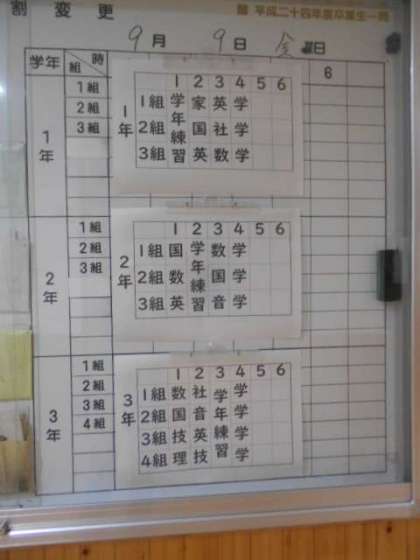 割変更
贈 平成二十四年度卒業生一同
9月 9日 金曜日
学年 組 時 6
1年
1組
2組
3組
1 2 3 4 5 6
1年
1組 学年練習 家 英 学
2組 国 社 学
3組 英 数 学
2年
1組
2組
3組
1 2 3 4 5 6
2年
1組 国 学年練習 数 学
2組 数 国 学
3組 英 音 学
3年
1組
2組
3組
4組
1 2 3 4 5 6
3年
1組 数 社 学年練習 学
2組 国 音 学
3組 技 英 学
4組 理 技 学